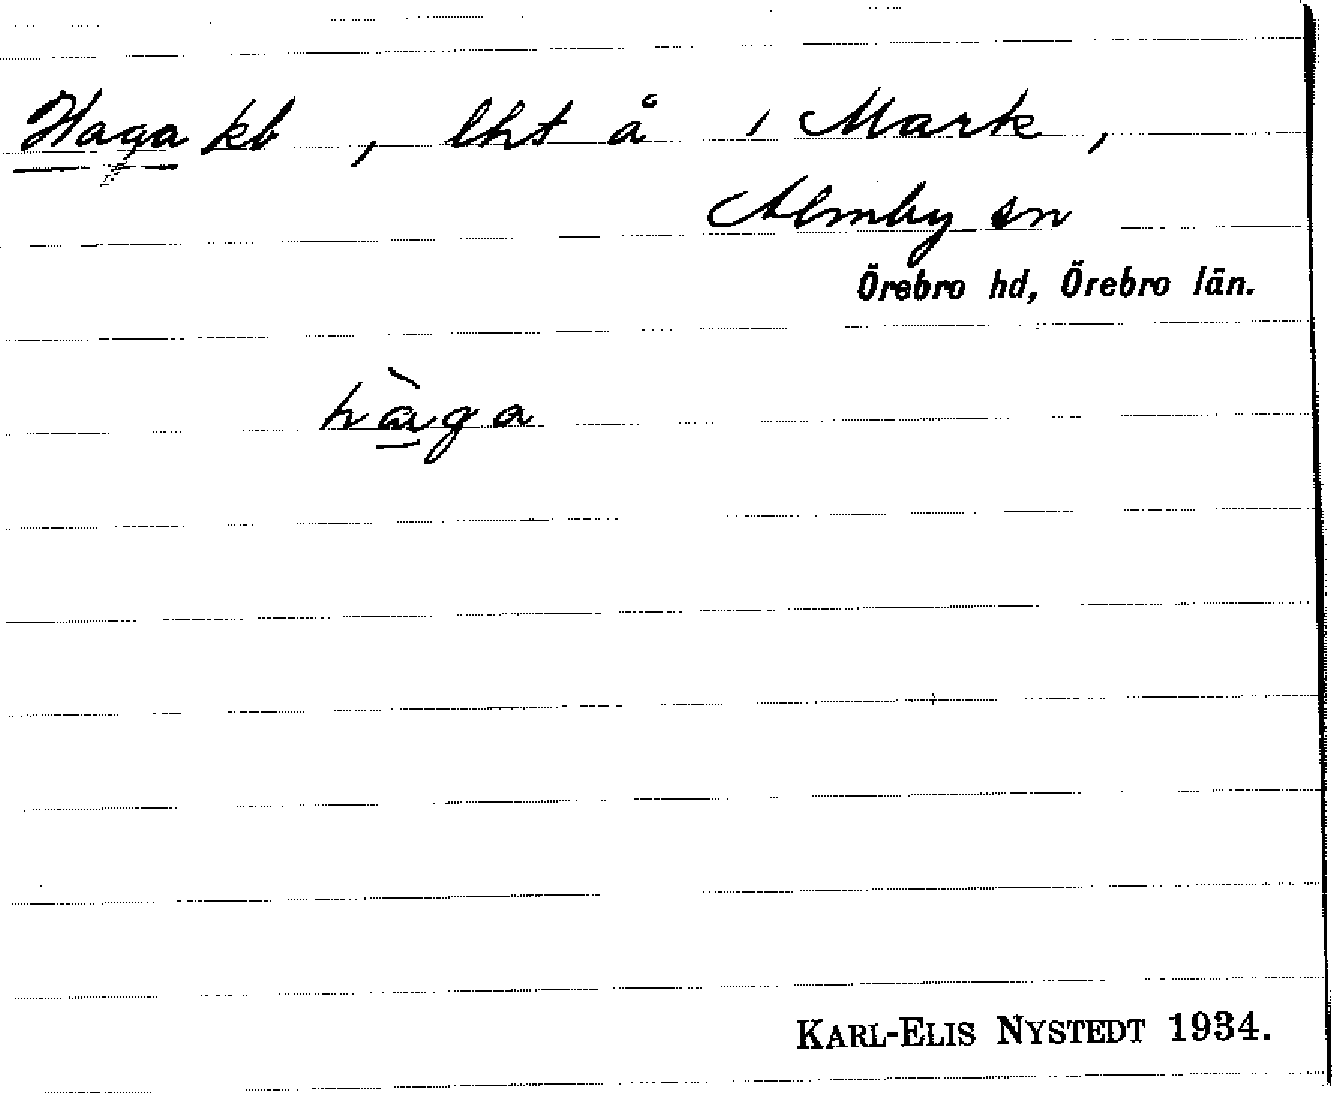 Haga kb, lht å i Mark,
Almby sn
Örebro hd, Örebro län.
hàga
KARL-ELIS NYSTEDT 1934.